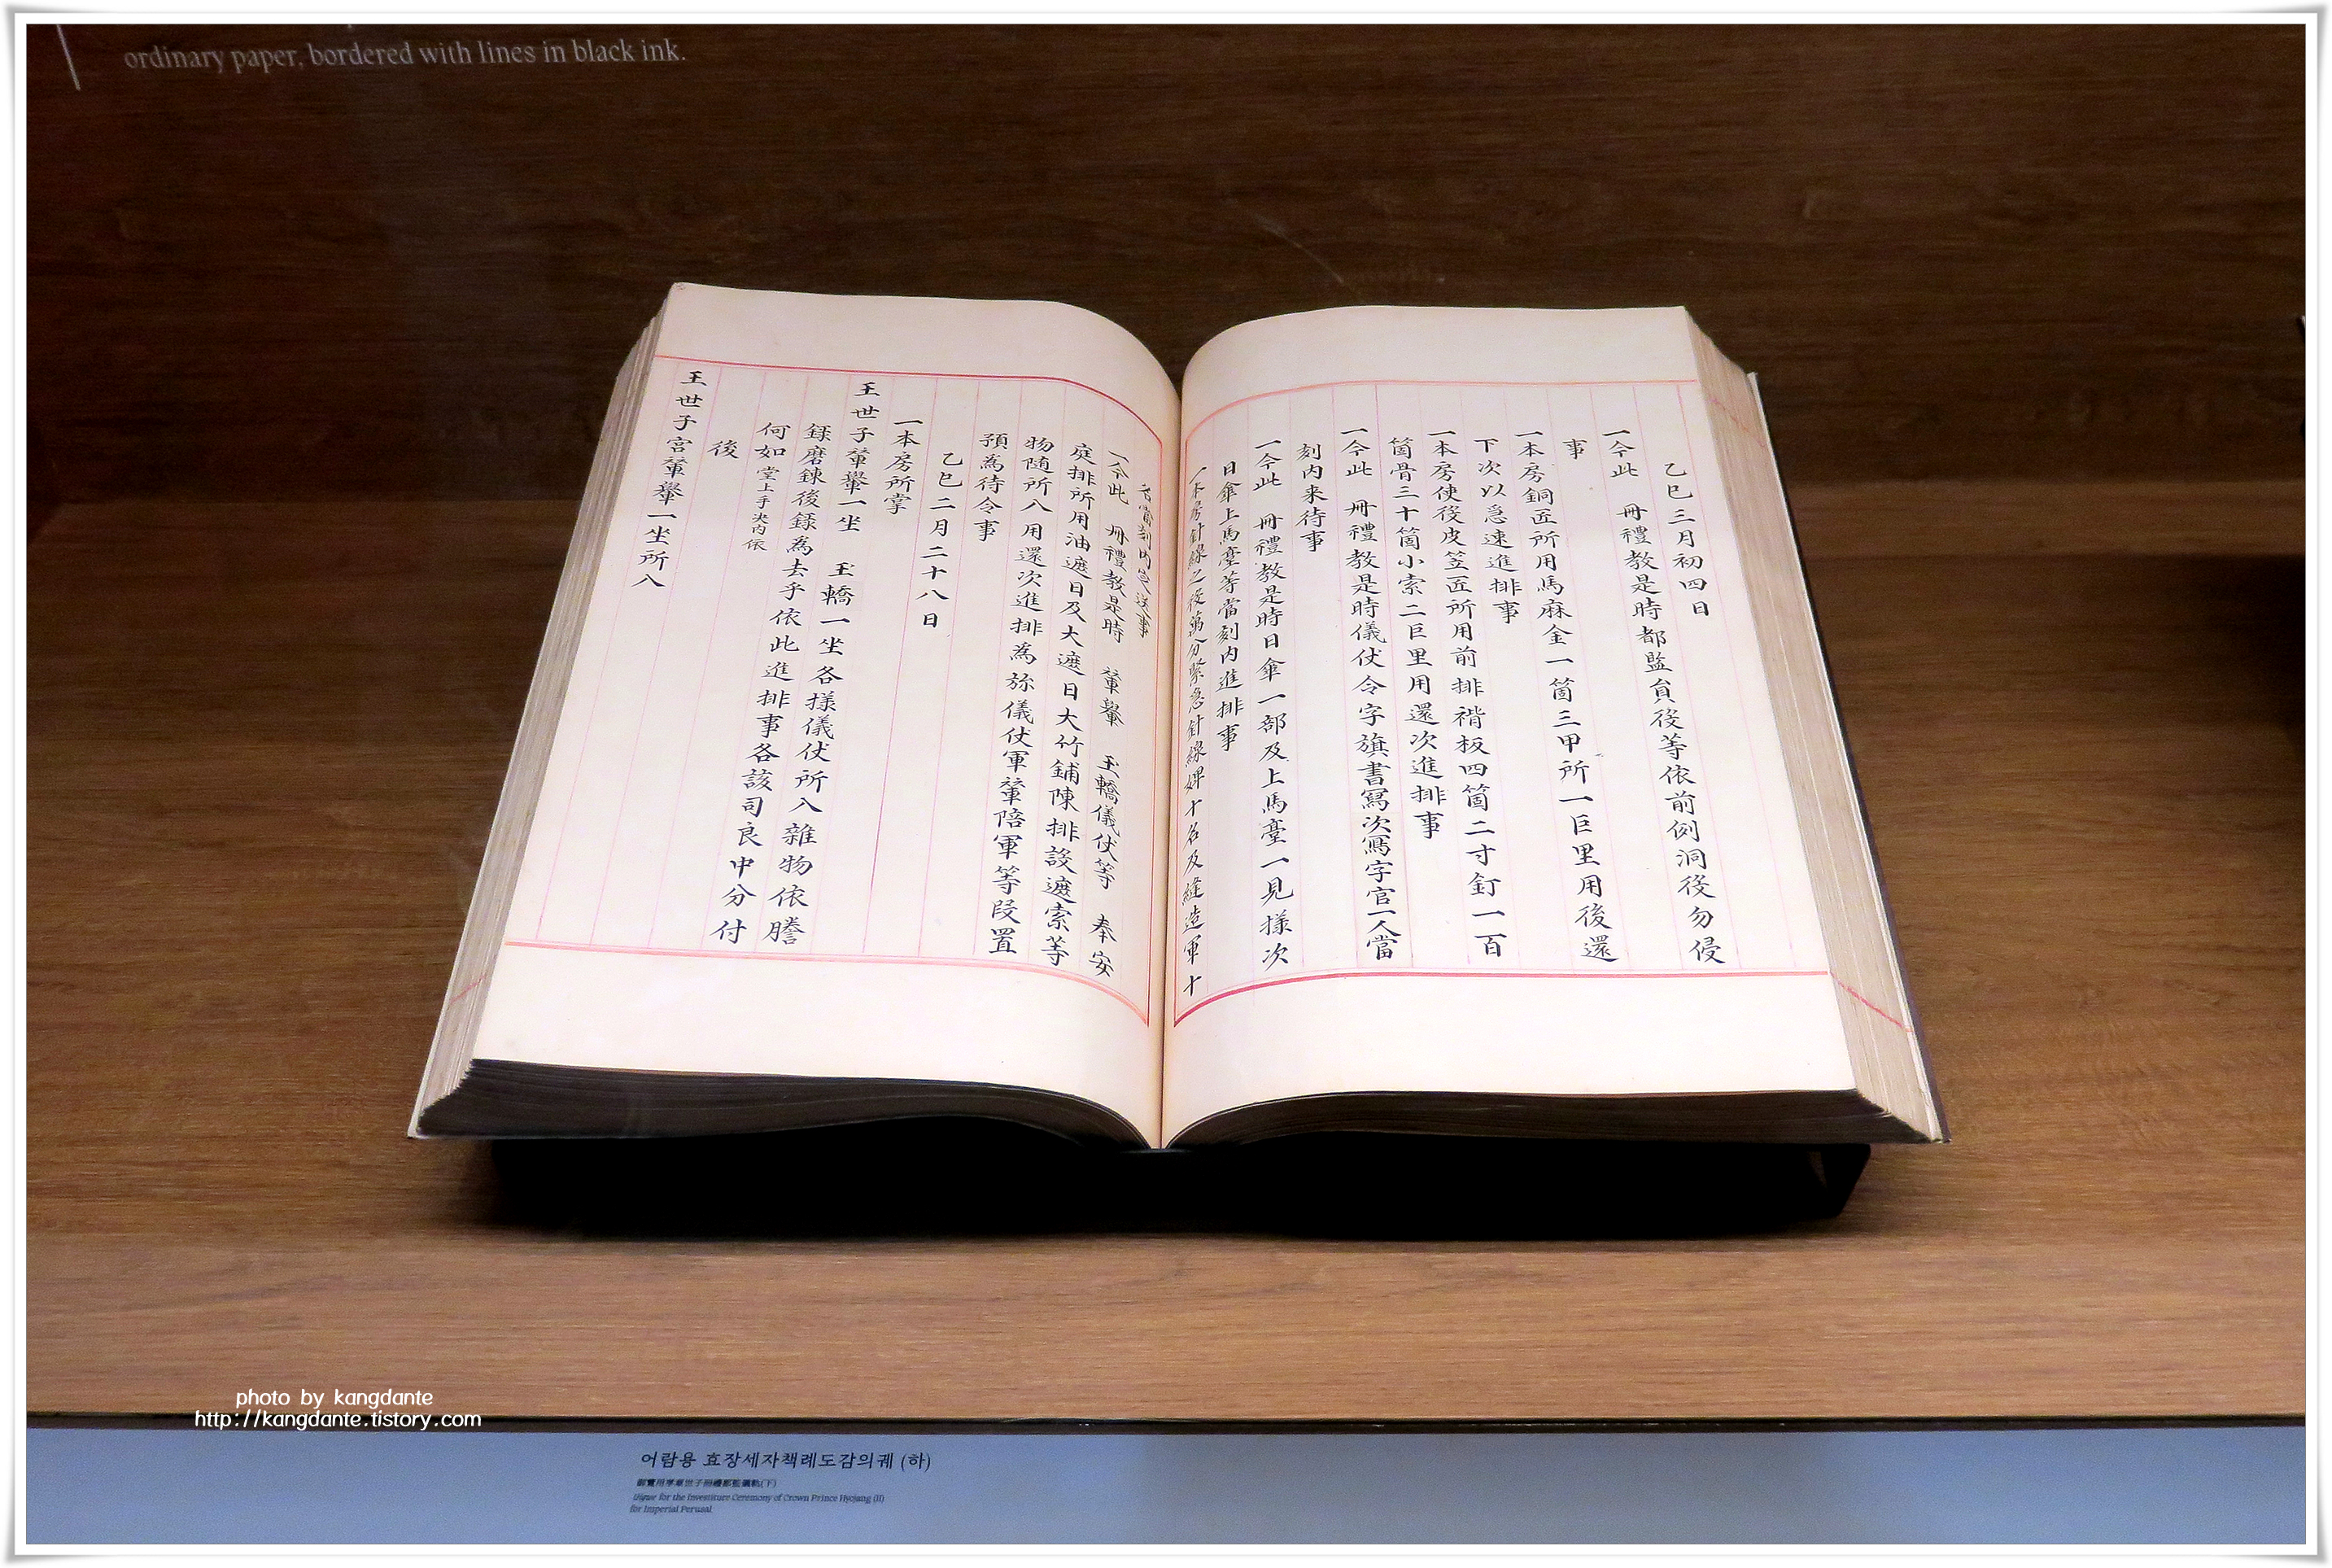 ordinary paper, bordered with lines in black ink.
乙巳三月初四日
一今此 冊禮教是時都監負後等依前例洞後勿侵
事
一本房銅匠所用馬麻金一箇三甲所一巨里用後還
下次以急速進排事
一本房使後皮笠匠所用前排楷板四箇二寸釘一百
箇骨三十箇小索二巨里用還次進排事
一今此 冊禮教是時儀仗令字旗書寫次寫字官一人當
刻内来待事
一今此 冊禮教是時日傘一部及上馬臺一見樣次
日傘上馬臺等當刻内進排事
一本房針線之役萬分緊急針線婢十名及縫造軍十
一今此 冊禮教是時 輦轝 玉轎儀仗等 奉安
庭排所用油遮日及大遮日大竹鋪陳排設遮索等
物随所入用還次進排為旀儀仗軍輦陪軍等段置
預為待令事
乙巳二月二十八日
一本房所掌
王世子輦轝一坐 玉轎一坐各樣儀仗所入雜物依謄
錄磨鍊後錄為去乎依此進排事各該司良中分付
何如堂上手决内依
後
王世子宮輦轝一坐所入
photo by kangdante
http://kangdante.tistory.com
어람용 효장세자책례도감의궤 (하)
御覽用孝章世子冊禮都監儀軌(下)
Uigwe for the Investiture Ceremony of Crown Prince Hyojang (II)
for Imperial Perusal